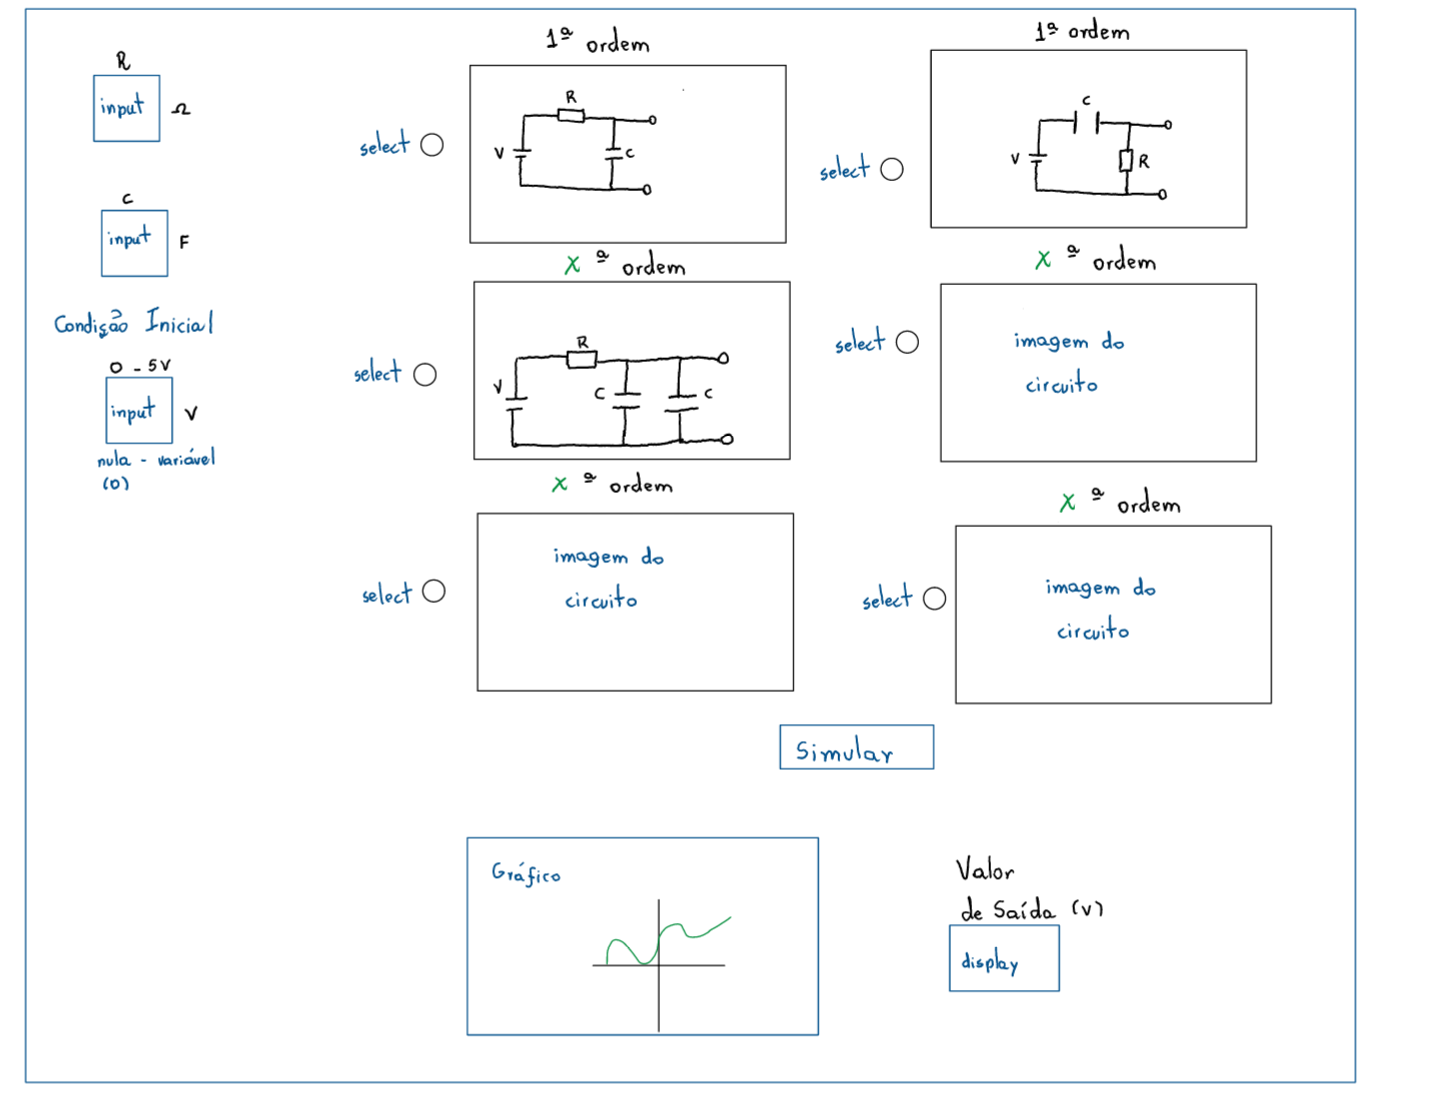 R
input Ω
C
input F
Condição Inicial
0 - 5V
input V
nula - variável
(0)
1ª ordem
select
R
V
C
1ª ordem
select
C
V
R
X ª ordem
select
R
V
C
C
X ª ordem
select
imagem do
circuito
X ª ordem
select
imagem do
circuito
X ª ordem
select
imagem do
circuito
Simular
Gráfico
Valor
de Saída (V)
display